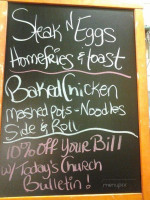 Steak N Eggs
Homefries & Toast
Baked Chicken
Mashed Pots - Noodles
Side & Roll
10% Off Your Bill
w/ Today's Church
Bulletin!